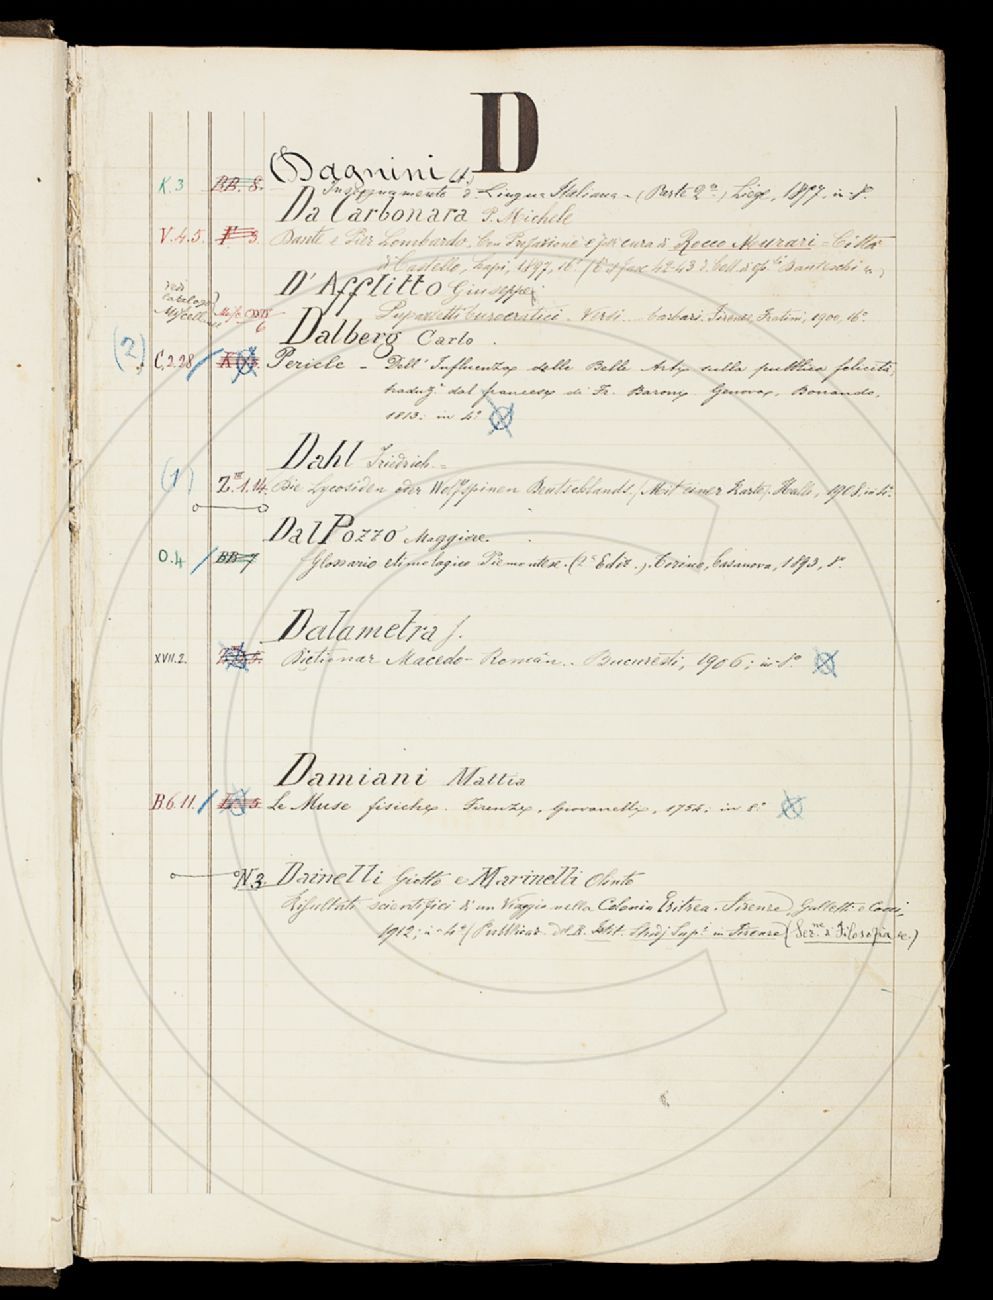 D
K. 3 BB. 8. Dagnini
Insegnamento d. Lingua Italiana - (Parte 2ª) Liège, 1897, in 8°.
Da Carbonara P. Michele
V. 4. 5. Dante e Pier Lombardo. Con Prefazione e per cura di Rocco Murari - Città
di Castello, Lapi, 1897, 16° (Opusc. 42-43 d. Coll. di op. Danteschi
D'Afflitto Giuseppe
vedi catalogo Miscell. Pupazzetti burocratici. Versi barbari. Firenze, Fratini, 1900, 16°.
Dalberg Carlo.
(2) C. 2. 28 Pericle - Dell'Influenza delle Belle Arti sulla pubblica felicità,
traduz. dal francese di Fr. Barony. Genova, Bonaudo,
1813: in 4°
Dahl Friedrich. =
(1) Z.III 1. 14. Die Lycosiden oder Wolfspinen Deutschlands. (Mit einer Karte). Halle, 1908. in 4°.
Dal Pozzo Maggiore.
O. 4 BB 7 Glossario etimologico Piemontese. (2ª Ediz.). Torino, Casanova, 1893, 8°.
Dalametra J.
XVII. 2. Dicționar Macedo-Român. București, 1906; in 8°.
Damiani Mattia
B 6. 11. Le Muse fisiche. Firenze, Giovanelli, 1754: in 8°
N. 3 Dainelli Giotto e Marinelli Olinto
Risultati scientifici di un Viaggio nella Colonia Eritrea. Firenze, Galletti e Cocci,
1912; in 4° (Pubblicaz. del R. Istit. Studj Sup. in Firenze (Sez.ne di Filosofia ec.)